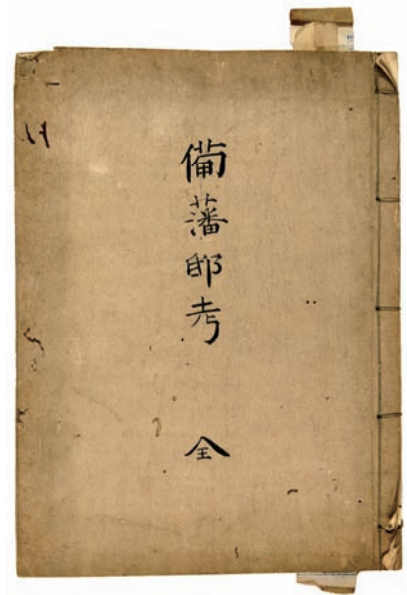 備藩邸考
全